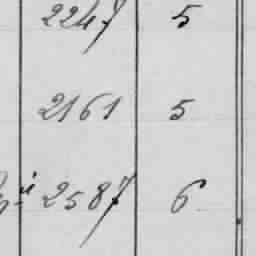 2247 5
2161 5
2587 6